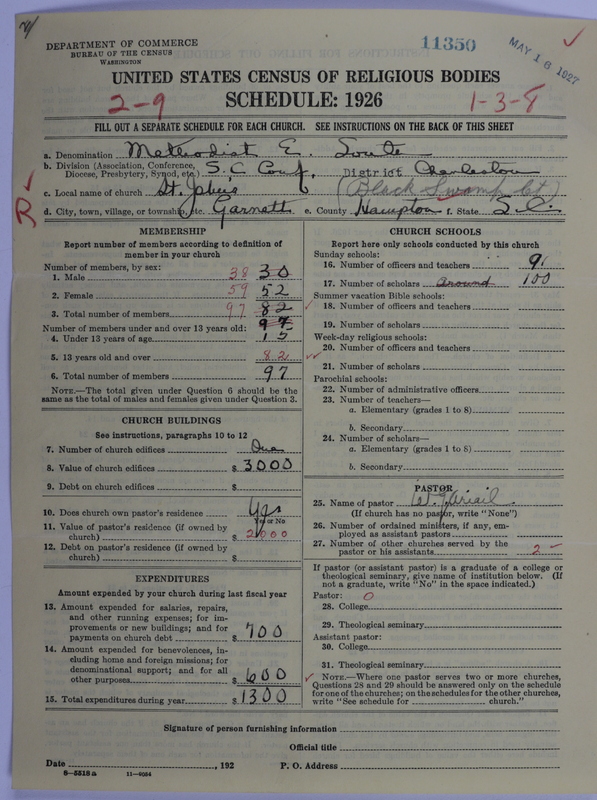 DEPARTMENT OF COMMERCE
BUREAU OF THE CENSUS
WASHINGTON
11350
MAY 18 1927
UNITED STATES CENSUS OF RELIGIOUS BODIES
2-9 SCHEDULE: 1926 1-3-8
FILL OUT A SEPARATE SCHEDULE FOR EACH CHURCH. SEE INSTRUCTIONS ON THE BACK OF THIS SHEET
a. Denomination Methodist E. South
b. Division (Association, Conference, Diocese, Presbytery, Synod, etc.) S. C. Conf. District Charleston
c. Local name of church St. Johns (Black Swamp Ct)
R
d. City, town, village, or township, etc. Garnett e. County Hampton f. State S. C.
MEMBERSHIP
Report number of members according to definition of
member in your church
Number of members, by sex:
1. Male 38 30
2. Female 59 52
3. Total number of members 97 82
Number of members under and over 13 years old: 97
4. Under 13 years of age 15
5. 13 years old and over 82
6. Total number of members 97
NOTE.—The total given under Question 6 should be the
same as the total of males and females given under Question 3.
CHURCH BUILDINGS
See instructions, paragraphs 10 to 12
7. Number of church edifices One
8. Value of church edifices $ 3000
9. Debt on church edifices $
10. Does church own pastor's residence Yes
Yes or No
11. Value of pastor's residence (if owned by
church) $ 2000
12. Debt on pastor's residence (if owned by
church) $
EXPENDITURES
Amount expended by your church during last fiscal year
13. Amount expended for salaries, repairs,
and other running expenses; for im-
provements or new buildings; and for
payments on church debt $ 700
14. Amount expended for benevolences, in-
cluding home and foreign missions; for
denominational support; and for all
other purposes $ 600
15. Total expenditures during year $ 1300
CHURCH SCHOOLS
Report here only schools conducted by this church
Sunday schools:
16. Number of officers and teachers 9
17. Number of scholars around 100
Summer vacation Bible schools:
18. Number of officers and teachers
19. Number of scholars
Week-day religious schools:
20. Number of officers and teachers
21. Number of scholars
Parochial schools:
22. Number of administrative officers
23. Number of teachers—
a. Elementary (grades 1 to 8)
b. Secondary
24. Number of scholars—
a. Elementary (grades 1 to 8)
b. Secondary
PASTOR
25. Name of pastor Ariail
(If church has no pastor, write "None")
26. Number of ordained ministers, if any, em-
ployed as assistant pastors
27. Number of other churches served by the
pastor or his assistants 2
If pastor (or assistant pastor) is a graduate of a college or
theological seminary, give name of institution below. (If
not a graduate, write "No" in the space indicated.)
Pastor: 0
28. College
29. Theological seminary
Assistant pastor:
30. College
31. Theological seminary
NOTE.—Where one pastor serves two or more churches,
Questions 28 and 29 should be answered only on the schedule
for one of the churches; on the schedules for the other churches,
write "See schedule for church."
Signature of person furnishing information
Official title
Date , 192 P. O. Address
8—5518a 11—9054